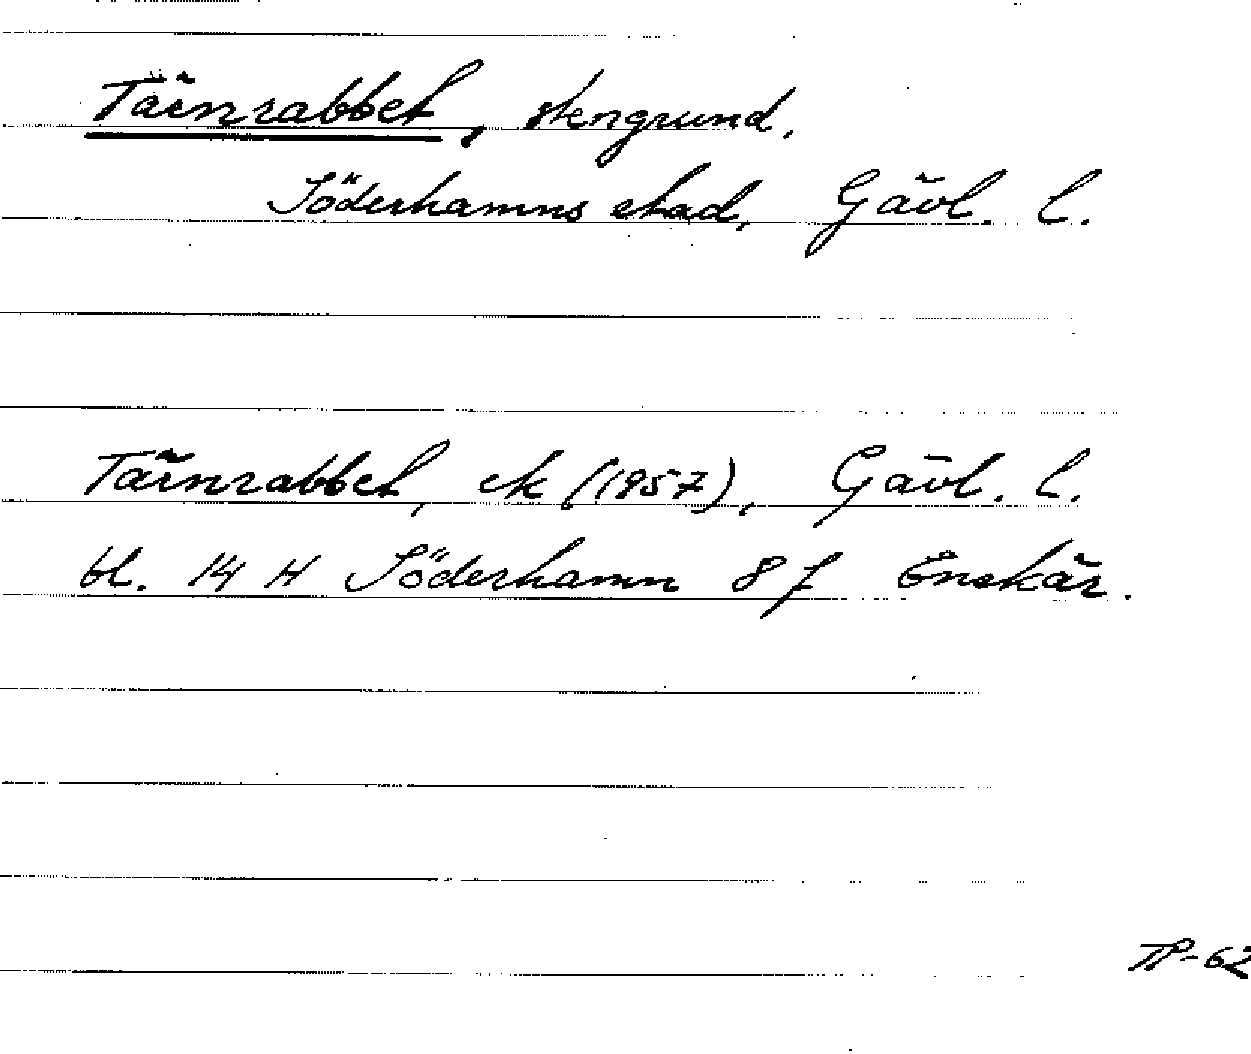 Tärnrabbet, stengrund,
Söderhamns stad, Gävl. l.
Tärnrabbet, ek (1957), Gävl. l.
bl. 14 H Söderhamn 8 f Enskär.
TP-62